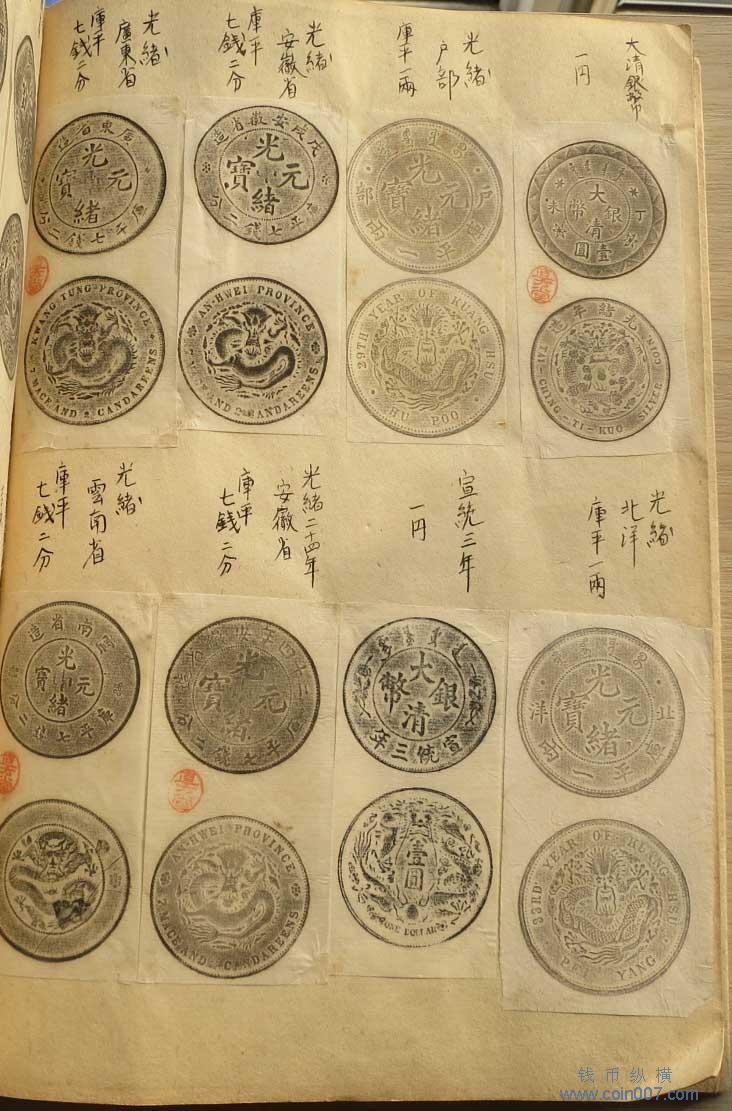 大清銀幣
一円
光緒
戶部
庫平一兩
光緒
安徽省
庫平
七錢二分
光緒
廣東省
庫平
七錢二分
大清銀幣
丁未
壹圓
光緒年造
CHING-TI-KUO SILVER COIN
光緒元寶
戶部
庫平一兩
29TH YEAR OF KUANG HSU
HU POO
戊戌安徽省造
光緒元寶
庫平七錢二分
AN-HWEI PROVINCE
AND 2 CANDAREENS
廣東省造
光緒元寶
庫平七錢二分
KWANG-TUNG PROVINCE
7 MACE AND 2 CANDAREENS
光緒
北洋
庫平一兩
宣統三年
一円
光緒二十四年
安徽省
庫平
七錢二分
光緒
雲南省
庫平
七錢二分
光緒元寶
北洋
庫平一兩
33RD YEAR OF KUANG HSU
PEI YANG
大清銀幣
宣統三年
壹圓
ONE DOLLAR
光緒元寶
庫平七錢二分
AN-HWEI PROVINCE
7 MACE AND 2 CANDAREENS
雲南省造
光緒元寶
庫平七錢二分
钱币纵横
www.coin007.com